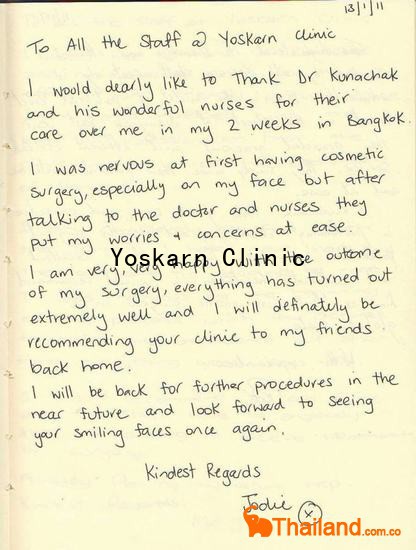 13/1/11
To All the Staff @ Yoskarn Clinic
I would dearly like to Thank Dr Kunachak
and his wonderful nurses for their
care over me in my 2 weeks in Bangkok.
I was nervous at first having cosmetic
surgery, especially on my face but after
talking to the doctor and nurses they
put my worries & concerns at ease.
Yoskarn Clinic
I am very, very happy with the outcome
of my surgery, everything has turned out
extremely well and I will definately be
recommending your clinic to my friends
back home.
I will be back for further procedures in the
near future and look forward to seeing
your smiling faces once again.
Kindest Regards
Jodie x
Thailand.com.co